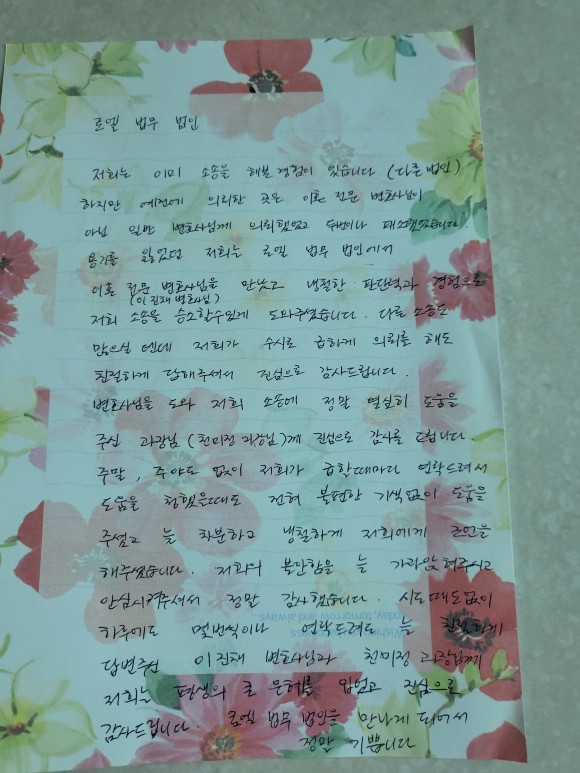 로엘 법무 법인
저희는 이미 소송을 해본 경험이 있습니다 (다른 법인)
하지만 예전에 의뢰한 곳은 이혼 전문 변호사님이
아닌 일반 변호사님께 의뢰했었고 두번이나 패소했었습니다.
용기를 잃었던 저희는 로엘 법무 법인에서
이혼 전문 변호사님을 만났고 냉철한 판단력과 경험으로
(이진채 변호사님)
저희 소송을 승소할수있게 도와주셨습니다. 다른 소송도
많으실 텐데 저희가 수시로 급하게 의뢰를 해도
친절하게 답해주셔서 진심으로 감사드립니다.
변호사님을 도와 저희 소송에 정말 열심히 도움을
주신 과장님 (천미정 과장님)께 진심으로 감사를 드립니다.
주말, 주야도 없이 저희가 급할때마다 연락드려서
도움을 청했을때도 전혀 불편한 기색없이 도움을
주셨고 늘 차분하고 냉철하게 저희에게 조언을
해주셨습니다. 저희의 불안함을 늘 가라앉혀주시고
안심시켜주셔서 정말 감사했습니다. 시도때도없이
하루에도 몇번씩이나 연락드려도 늘 친절하게
답변주신 이진채 변호사님과 천미정 과장님께
저희는 평생의 큰 은혜를 입었고 진심으로
감사드립니다. 로엘 법무 법인을 만나게 되어서
정말 기쁩니다